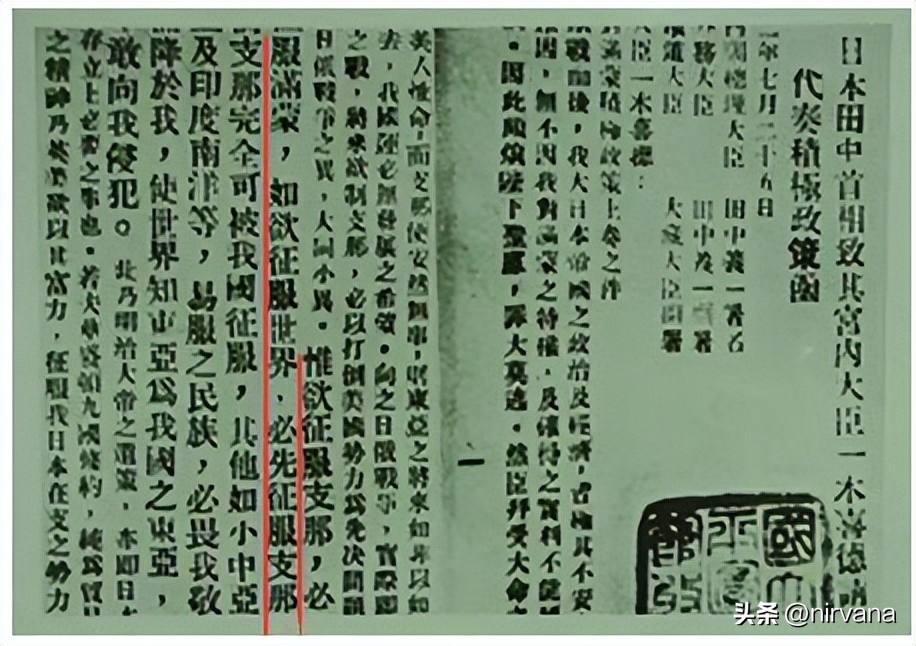 日本田中首相致其宮內大臣一木喜德
代奏積極政策函
二年七月二十五日
內閣總理大臣 田中義一署名
外務大臣 田中義一署
鐵道大臣 大藏大臣
大臣一木喜德:
滿蒙積極政策上奏之件
歐戰而後,我大日本帝國之政治及經濟,皆極其不安
原因,無不因我對滿蒙之特權,及確得之實利不能
。因此頗煩陛下聖慮,罪大莫逃。然臣拜受大命
一
英人性命,而支那便安然無事,則東亞之將來如
去,我國運必無發展之希望。向之日俄戰爭,實際
之戰,將來欲制支那,必以打倒美國勢力為先決問題
日俄戰爭之異,大同小異。惟欲征服支那,必
服滿蒙,如欲征服世界,必先征服支那
支那完全可被我國征服,其他如小中亞
及印度南洋等,易服之民族,必畏我敬
降於我,使世界知東亞為我國之東亞,
敢向我侵犯。此乃明治大帝之遺策,亦即日本
存立上必要之事也。若夫華盛頓九國條約,純為貿易
之精神乃英美欲以其富力,征服我日本在支之勢力
头条 @nirvana